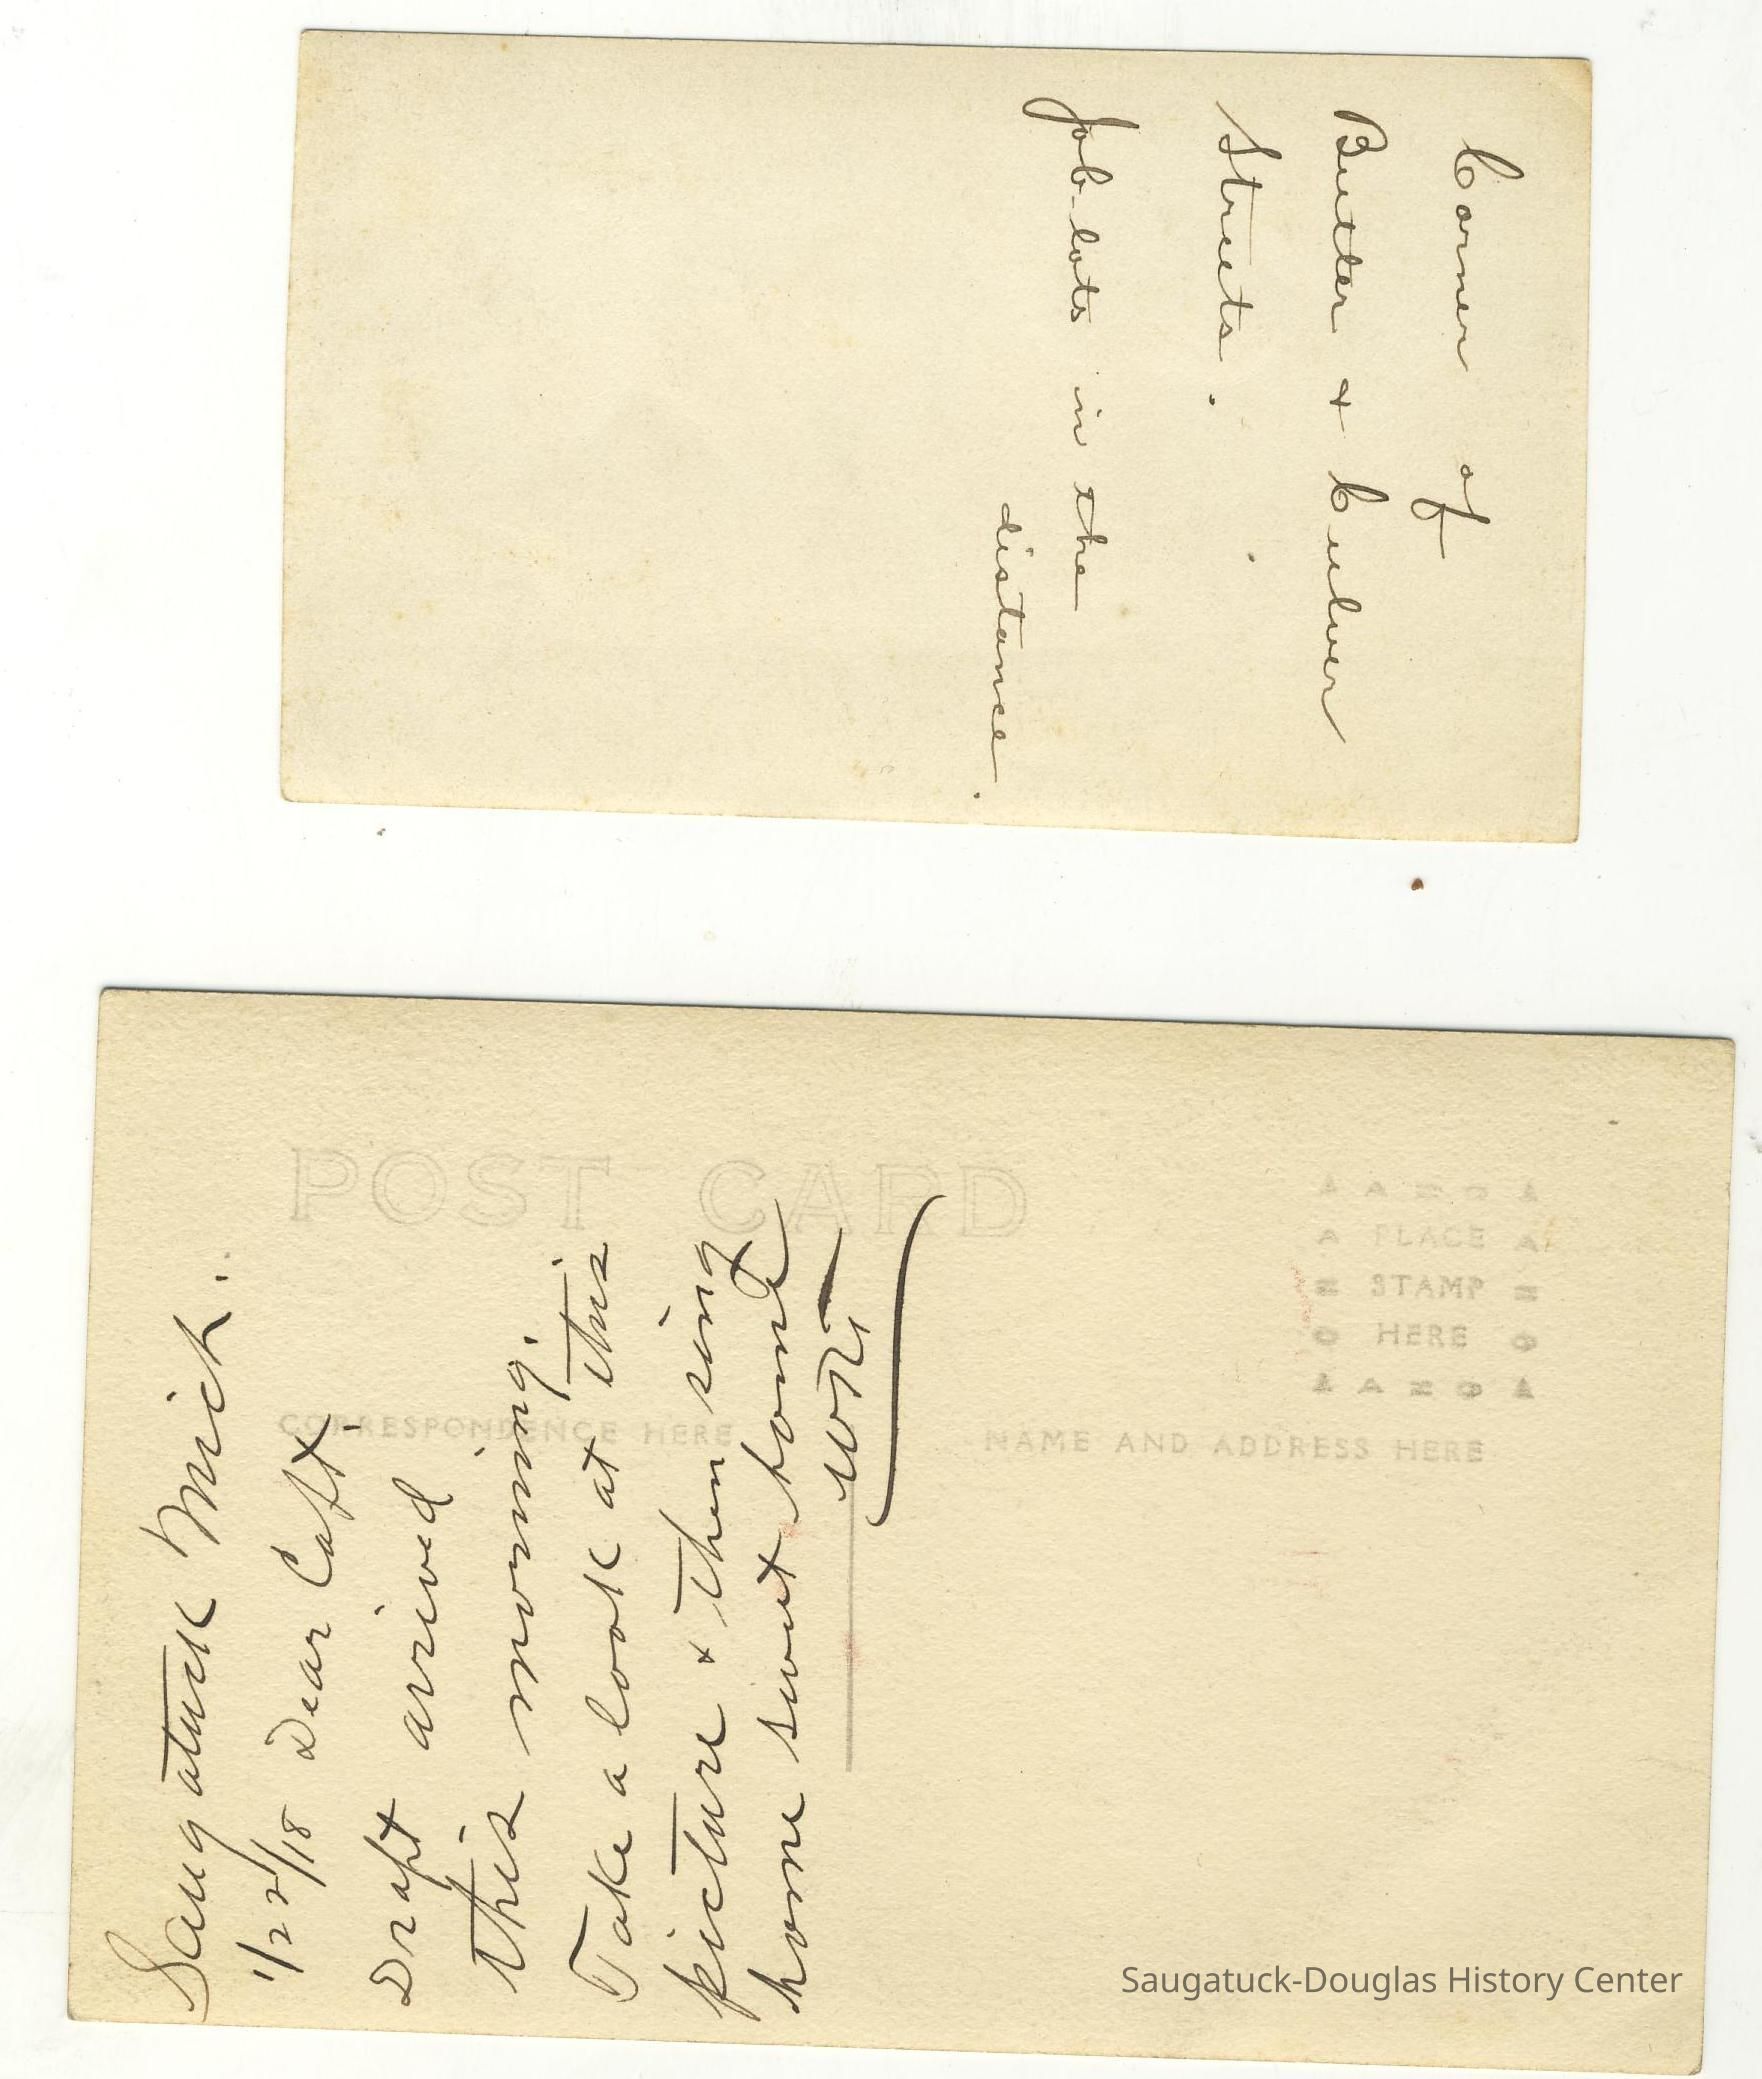 Corner of
Butler & Culver
Streets.
Job lots in the
distance.
POST CARD
PLACE
STAMP
HERE
CORRESPONDENCE HERE
NAME AND ADDRESS HERE
Saugatuck Mich.
1/22/18 Dear Capt.
Draft arived
this morning.
Take a look at this
picture & then sing
home sweet home
Saugatuck-Douglas History Center